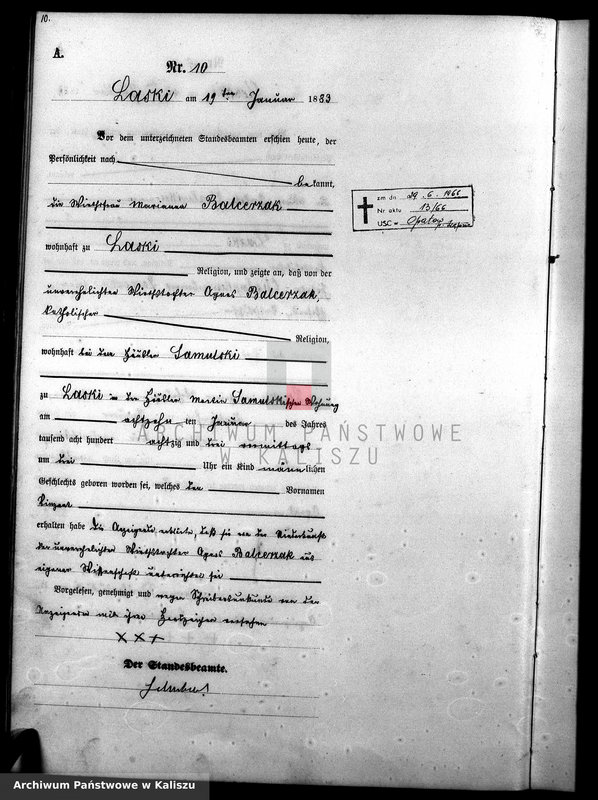 10.
A.
Nr. 10
Laski am 19ten Januar 1883
Vor dem unterzeichneten Standesbeamten erschien heute, der
Persönlichkeit nach
bekannt,
die Wirthsfrau Marianna Balcerzak
zm dn 29.6.1966
Nr aktu 13/66
USC = Opatów
wohnhaft zu Laski
Religion, und zeigte an, daß von der
unverehelichten Wirthstochter Agnes Balcerzak,
katholischer
Religion,
wohnhaft bei dem Häusler Samulski
zu Laski in der Häusler Martin Samulskischen Wohnung
am achtzehn ten Januar des Jahres
tausend acht hundert achtzig und drei vormittags
um drei Uhr ein Kind männlichen
Geschlechts geboren worden sei, welches den Vornamen
Vinzent
erhalten habe Die Anzeigende erklärte, daß sie von der Niederkunft
der unverehelichten Wirthstochter Agnes Balcerzak aus
eigener Wissenschaft unterrichtet sei
Vorgelesen, genehmigt und wegen Schreibensunkunde von der
Anzeigenden mit ihrem Handzeichen versehen
XXX
Der Standesbeamte.
ARCHIWUM PAŃSTWOWE
W KALISZU
Archiwum Państwowe w Kaliszu